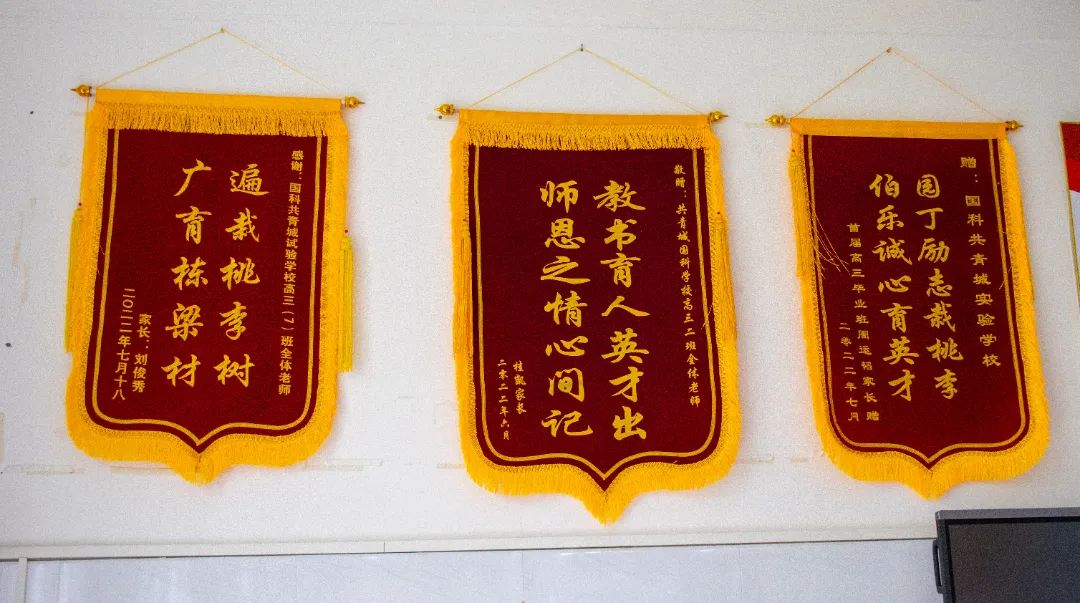 感谢：国科共青城试验学校高三（7）班全体老师
遍栽桃李树
广育栋梁材
家长：刘俊秀
二〇二二年七月十八
敬赠：共青城国科学校高三二班全体老师
教书育人英才出
师恩之情心间记
桂凯家长
二零二二年六月
赠：国科共青城实验学校
园丁励志栽桃李
伯乐诚心育英才
首届高三毕业班周运韬家长赠
二零二二年七月